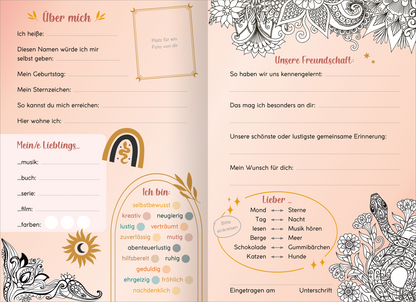 Über mich
Ich heiße:
Diesen Namen würde ich mir
selbst geben:
Mein Geburtstag:
Mein Sternzeichen:
So kannst du mich erreichen:
Hier wohne ich:
Platz für ein
Foto von dir
Mein/e Lieblings...
...musik:
...buch:
...serie:
...film:
...farben:
Ich bin:
selbstbewusst
kreativ neugierig
lustig verträumt
zuverlässig mutig
abenteuerlustig
hilfsbereit ruhig
geduldig
ehrgeizig fröhlich
nachdenklich
Unsere Freundschaft
So haben wir uns kennengelernt:
Das mag ich besonders an dir:
Unsere schönste oder lustigste gemeinsame Erinnerung:
Mein Wunsch für dich:
Lieber ...
Bitte
ankreisen
Mond Sterne
Tag Nacht
lesen Musik hören
Berge Meer
Schokolade Gummibärchen
Katzen Hunde
Eingetragen am Unterschrift